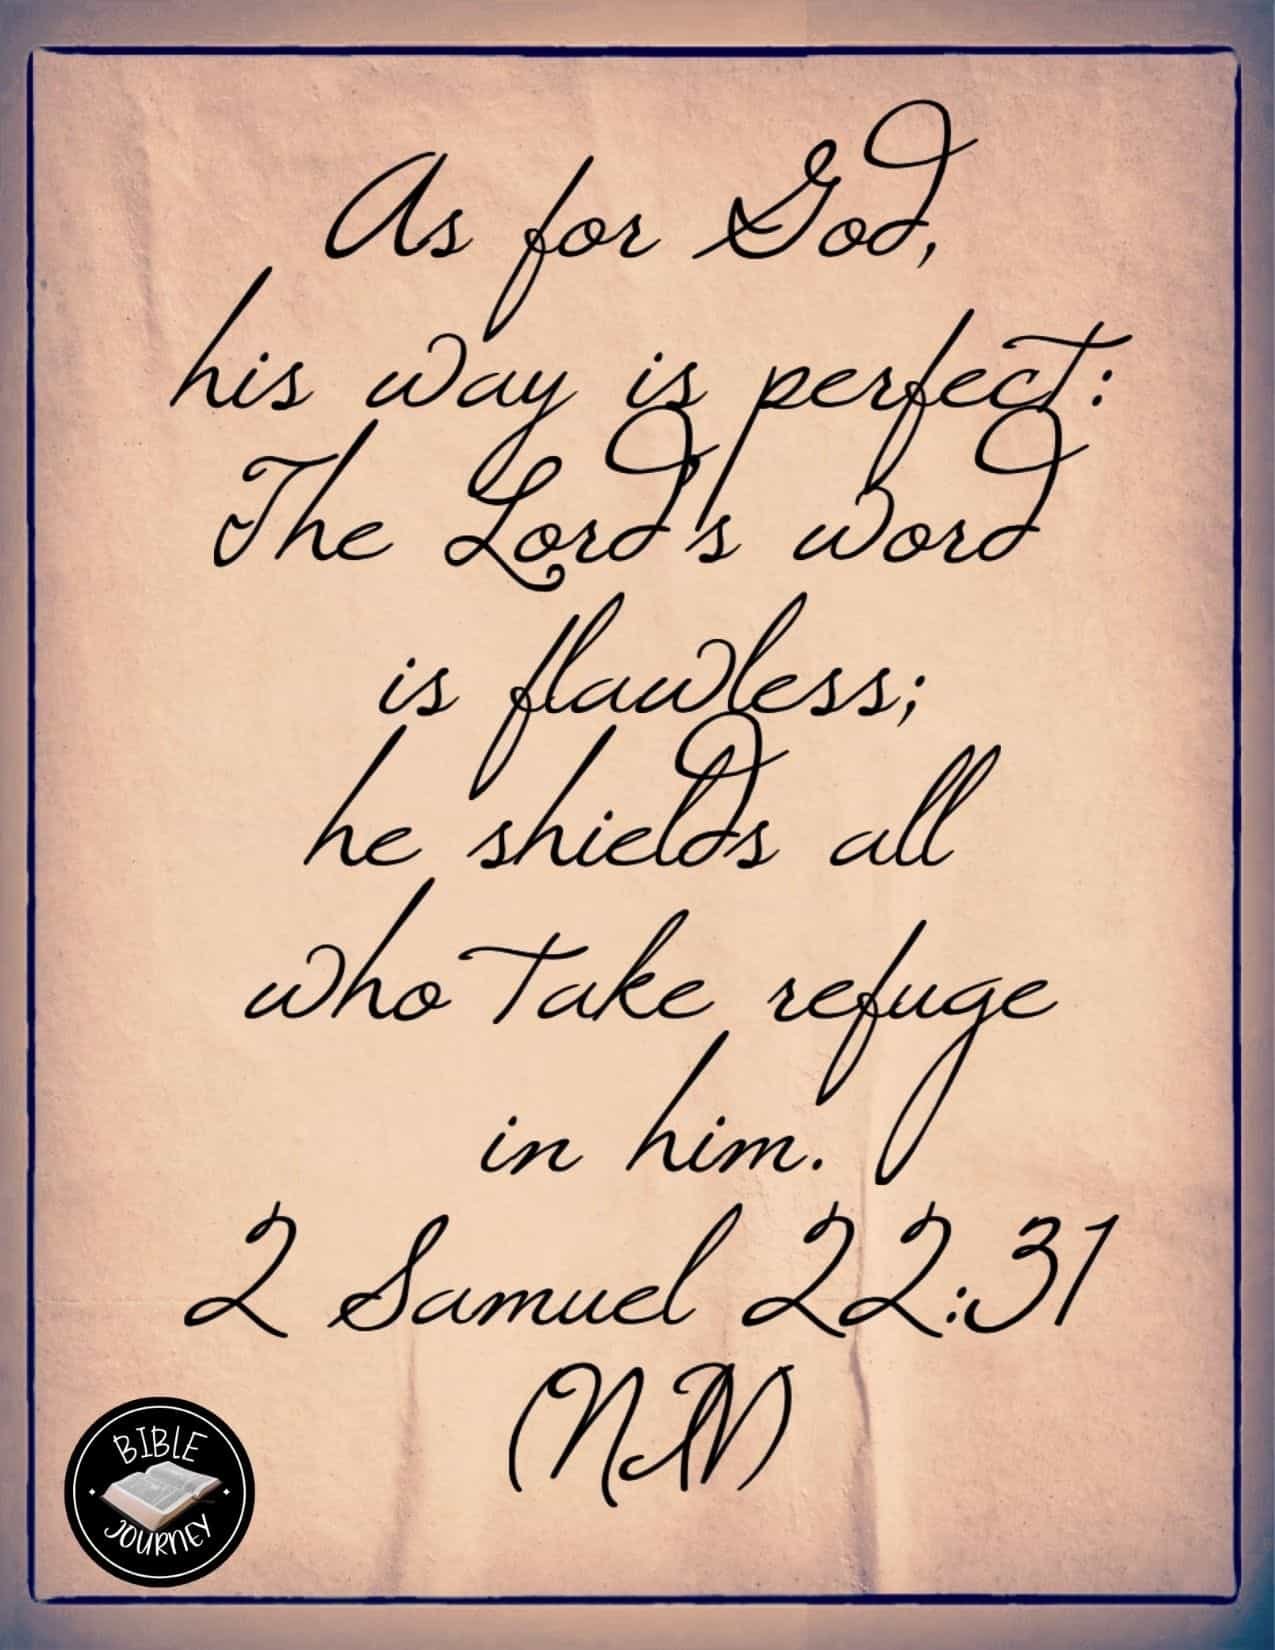 As for God,
his way is perfect:
The Lord's word
is flawless;
he shields all
who take refuge
in him.
2 Samuel 22:31
(NIV)
BIBLE
JOURNEY